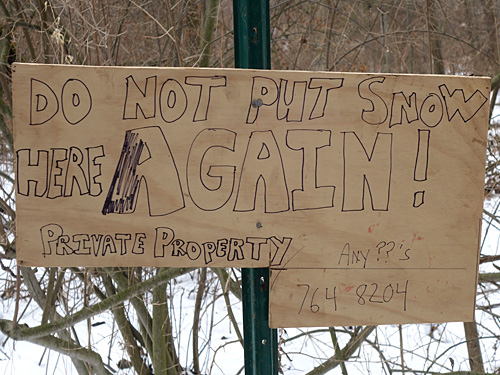 DO NOT PUT SNOW
HERE AGAIN!
PRIVATE PROPERTY
ANY ??'s
764 8204